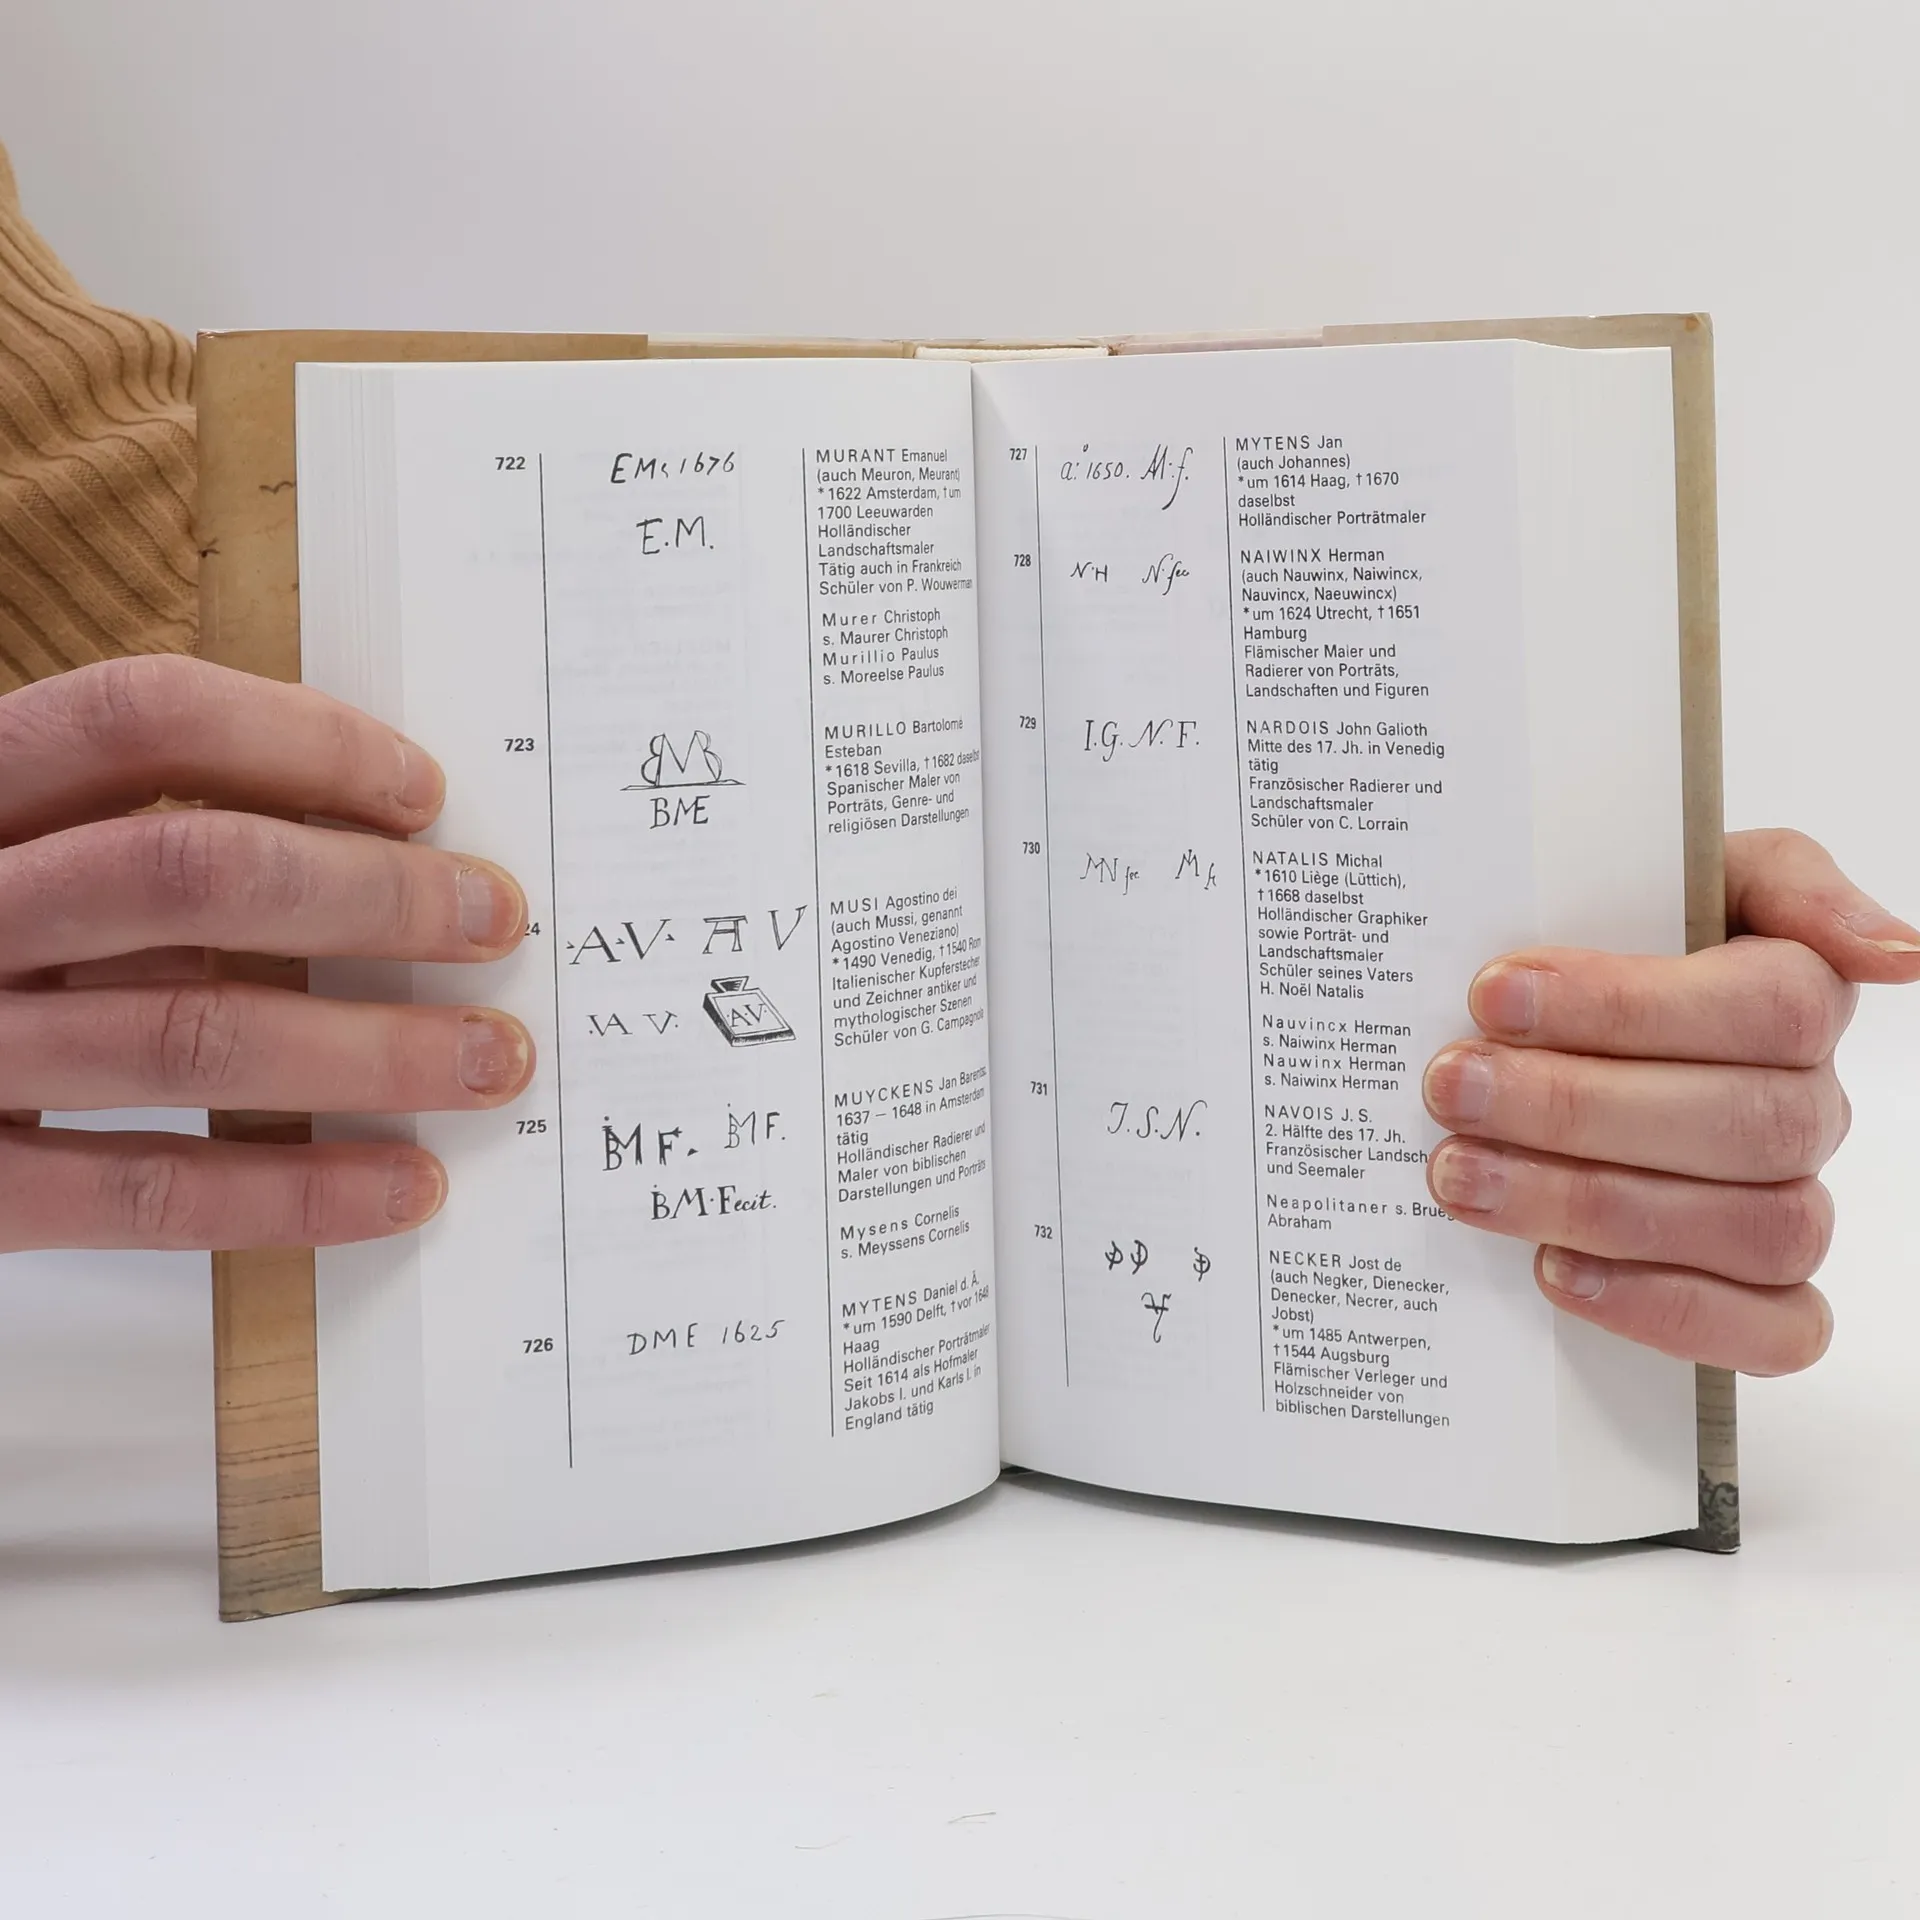 722
EMs 1676
E.M.
MURANT Emanuel
(auch Meuron, Meurant)
* 1622 Amsterdam, † um
1700 Leeuwarden
Holländischer
Landschaftsmaler
Tätig auch in Frankreich
Schüler von P. Wouwerman
Murer Christoph
s. Maurer Christoph
Murillio Paulus
s. Moreelse Paulus
723
BME
MURILLO Bartolomé
Esteban
* 1618 Sevilla, † 1682 daselbst
Spanischer Maler von
Porträts, Genre- und
religiösen Darstellungen
24
·A·V· A V
.VA V. AV
MUSI Agostino dei
(auch Mussi, genannt
Agostino Veneziano)
* 1490 Venedig, † 1540 Rom
Italienischer Kupferstecher
und Zeichner antiker und
mythologischer Szenen
Schüler von G. Campagnola
725
BM F. BM F.
BM·Fecit.
MUYCKENS Jan Barentsz
1637 – 1648 in Amsterdam
tätig
Holländischer Radierer und
Maler von biblischen
Darstellungen und Porträts
Mysens Cornelis
s. Meyssens Cornelis
726
DME 1625
MYTENS Daniel d. Ä.
* um 1590 Delft, † vor 1648
Haag
Holländischer Porträtmaler
Seit 1614 als Hofmaler
Jakobs I. und Karls I. in
England tätig
727
a: 1650. M:f.
MYTENS Jan
(auch Johannes)
* um 1614 Haag, † 1670
daselbst
Holländischer Porträtmaler
728
N·H N·fec
NAIWINX Herman
(auch Nauwinx, Naiwincx,
Nauvincx, Naeuwincx)
* um 1624 Utrecht, † 1651
Hamburg
Flämischer Maler und
Radierer von Porträts,
Landschaften und Figuren
729
I.G. N. F.
NARDOIS John Galioth
Mitte des 17. Jh. in Venedig
tätig
Französischer Radierer und
Landschaftsmaler
Schüler von C. Lorrain
730
MN fec
NATALIS Michal
* 1610 Liège (Lüttich),
† 1668 daselbst
Holländischer Graphiker
sowie Porträt- und
Landschaftsmaler
Schüler seines Vaters
H. Noël Natalis
Nauvincx Herman
s. Naiwinx Herman
Nauwinx Herman
s. Naiwinx Herman
731
J.S.N.
NAVOIS J. S.
2. Hälfte des 17. Jh.
Französischer Landsch
und Seemaler
Neapolitaner s. Brueg
Abraham
732
NECKER Jost de
(auch Negker, Dienecker,
Denecker, Necrer, auch
Jobst)
* um 1485 Antwerpen,
† 1544 Augsburg
Flämischer Verleger und
Holzschneider von
biblischen Darstellungen